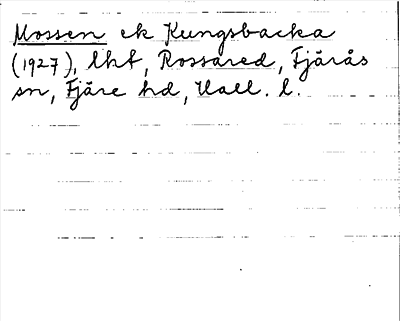 Mossen ek Kungsbacka
(1927), lkt, Rossared, Fjärås
sn, Fjäre hd, Hall. l.